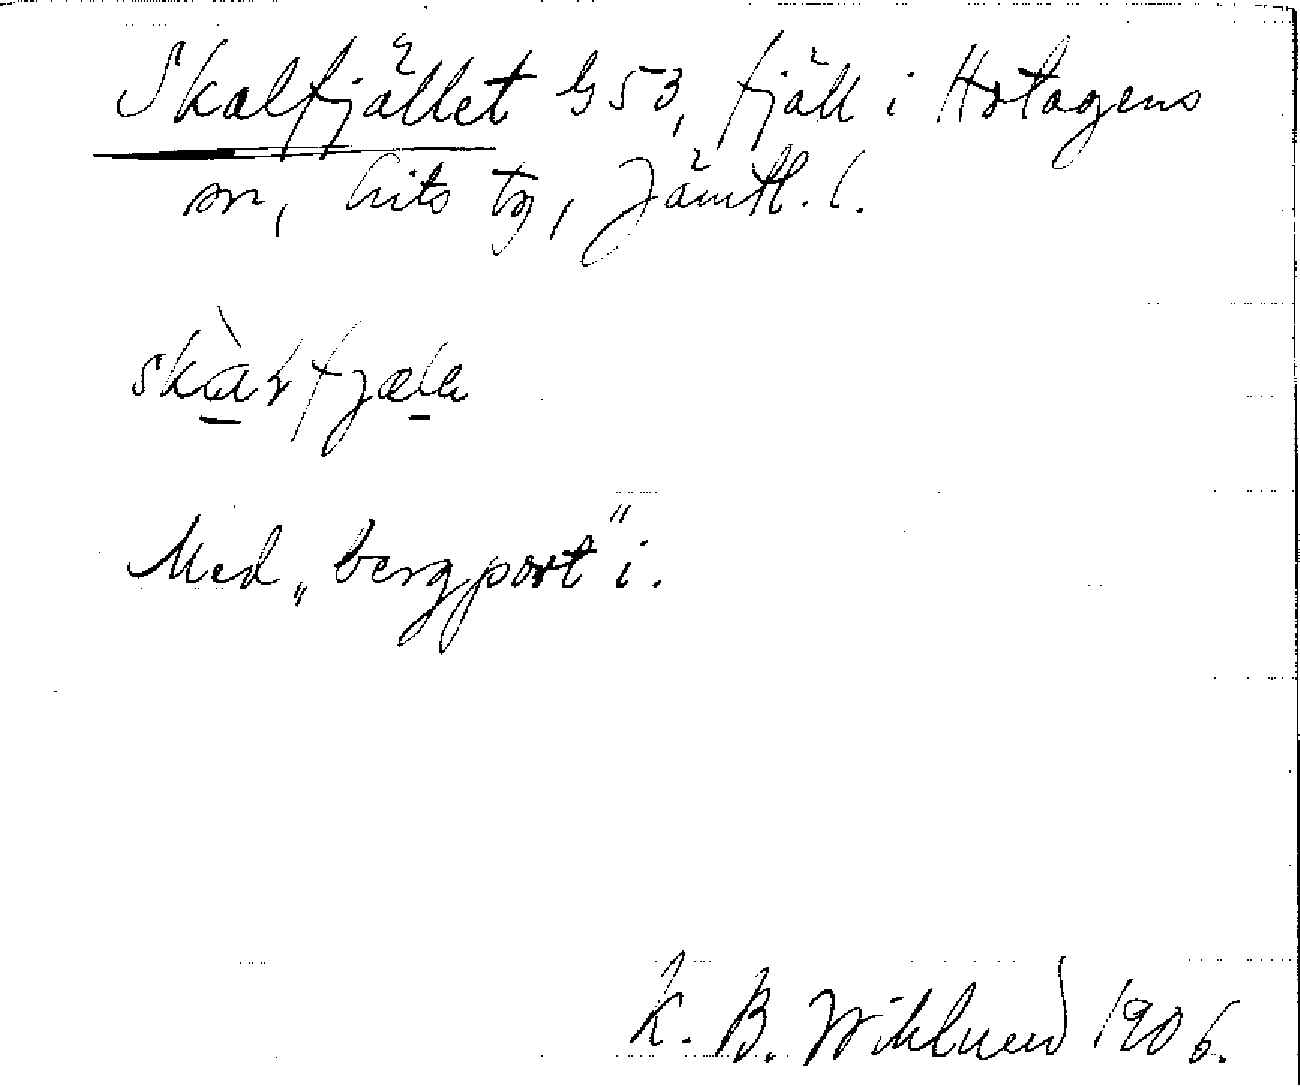 Skalfjället G53, fjäll i Hotagens
sn, Lits tg, Jämtl. l.
Med „bergport" i.
K. B. Wiklund 1906.